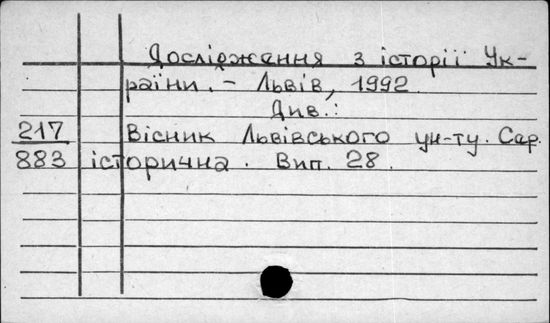 Дослідження з історії Ук-
раїни. – Львів, 1992
Див.:
217 Вісник Львівського ун-ту. Сер.
883 історична. Вип. 28.